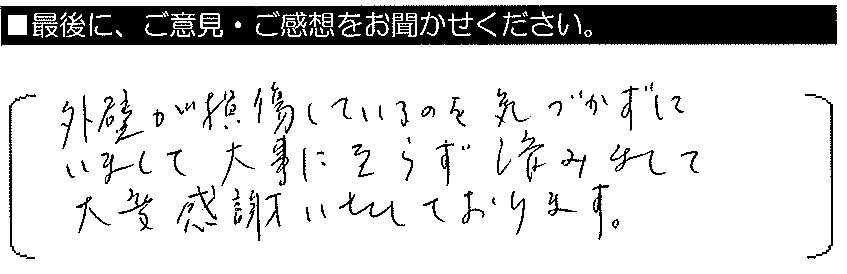 ■最後に、ご意見・ご感想をお聞かせください。
外壁が損傷しているのを気づかずに
いまして大事に至らず済みまして
大変感謝いたしております。